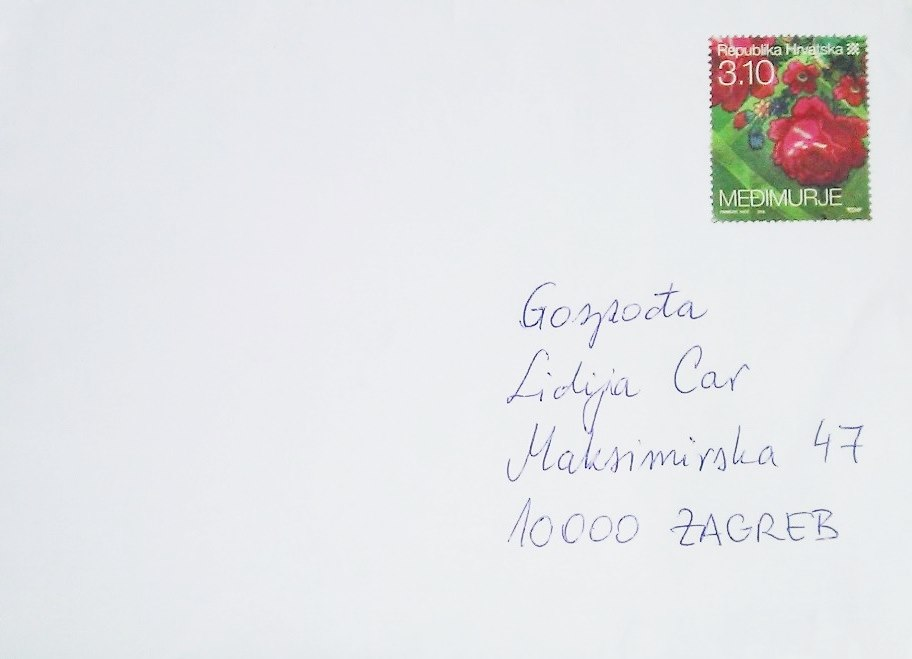 Republika Hrvatska
3.10
MEĐIMURJE
Gospođa
Lidija Car
Maksimirska 47
10000 ZAGREB